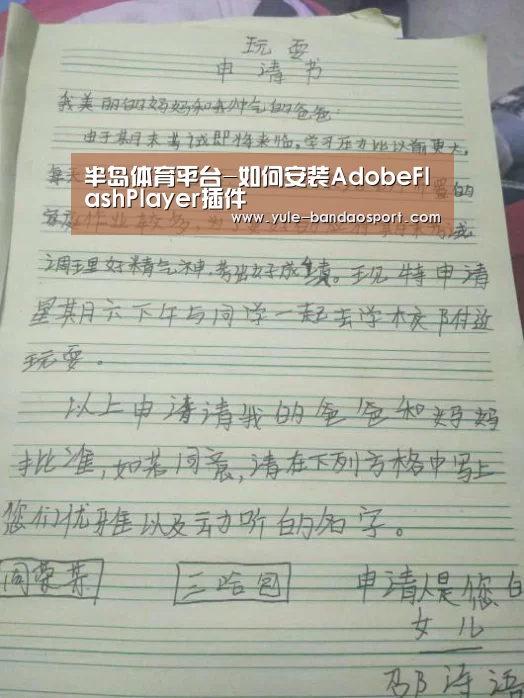 玩耍
申请书
我美丽的妈妈和我帅气的爸爸:
由于期末考试即将来临,学习压力比以前更大,
每天
半岛体育平台–如何安装AdobeFl
ashPlayer插件
www.yule-bandaosport.com
的
作业较多,
调理好精气神,考出好成绩。现特申请
星期六下午与同学一起去学校附近
玩耍。
以上申请请我的爸爸和妈妈
批准,如若同意,请在下列方格中写上
您们优雅以及动听的名字。
三哈包
申请人是您
女儿
诗语